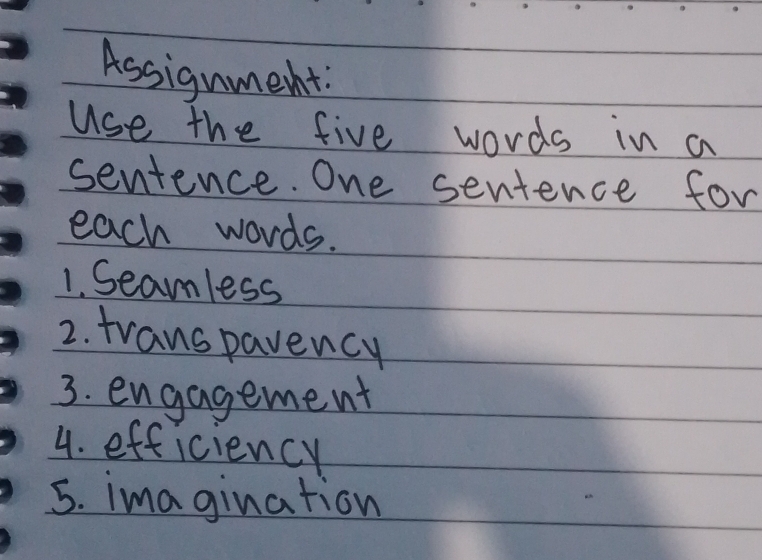 Assignment:
Use the five words in a
sentence. One sentence for
each words.
1. Seamless
2. transparency
3. engagement
4. efficiency
5. imagination